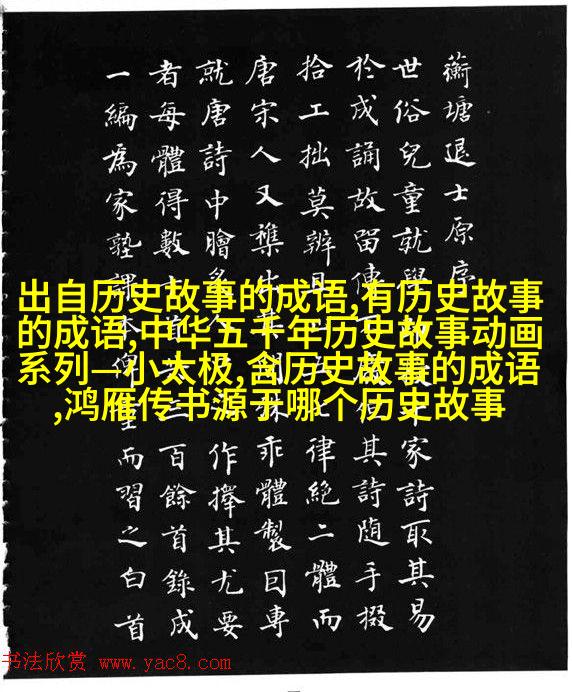 蘅塘退士原序
世俗兒童就學家詩取其易
於成誦故留傳其詩隨手掇
拾工拙莫辨且律絕二體而
唐宋人又雜出乖體製因專
就唐詩中膾作擇其尤要
者每體得數百餘首錄成
一編為家塾課而習之白首
出自历史故事的成语,有历史故事
的成语,中华五千年历史故事动画
系列—小太极,含历史故事的成语
,鸿雁传书源于哪个历史故事
书法欣赏 www.yac8.com